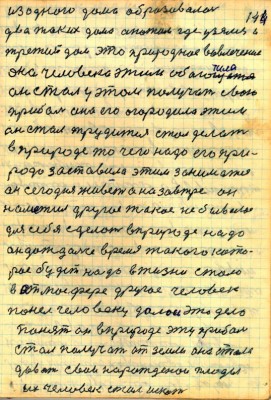 из одного дома образовалас 144
два таких дома а потом где узялис и
третий дом это природное вовлечение
она человека этим обагощ тила
ан стал у этом получат свою
прибол она его огородила этим
ан стал трудится стал делат
в природе то чего надо его при-
рода заставила этим заниматся
ан сегодня живет а на завтре он
наметил другое такое небывалое
для себя сделат в природе надо
андождалсе время такого кото-
рое будит надо в жизни стало
в атмосфере другое человек
понел человеку далои это дело
понят ан в природе эту прибол
стал получат от земли она стала
дават свои нарожденои плоды
их человек стал искат